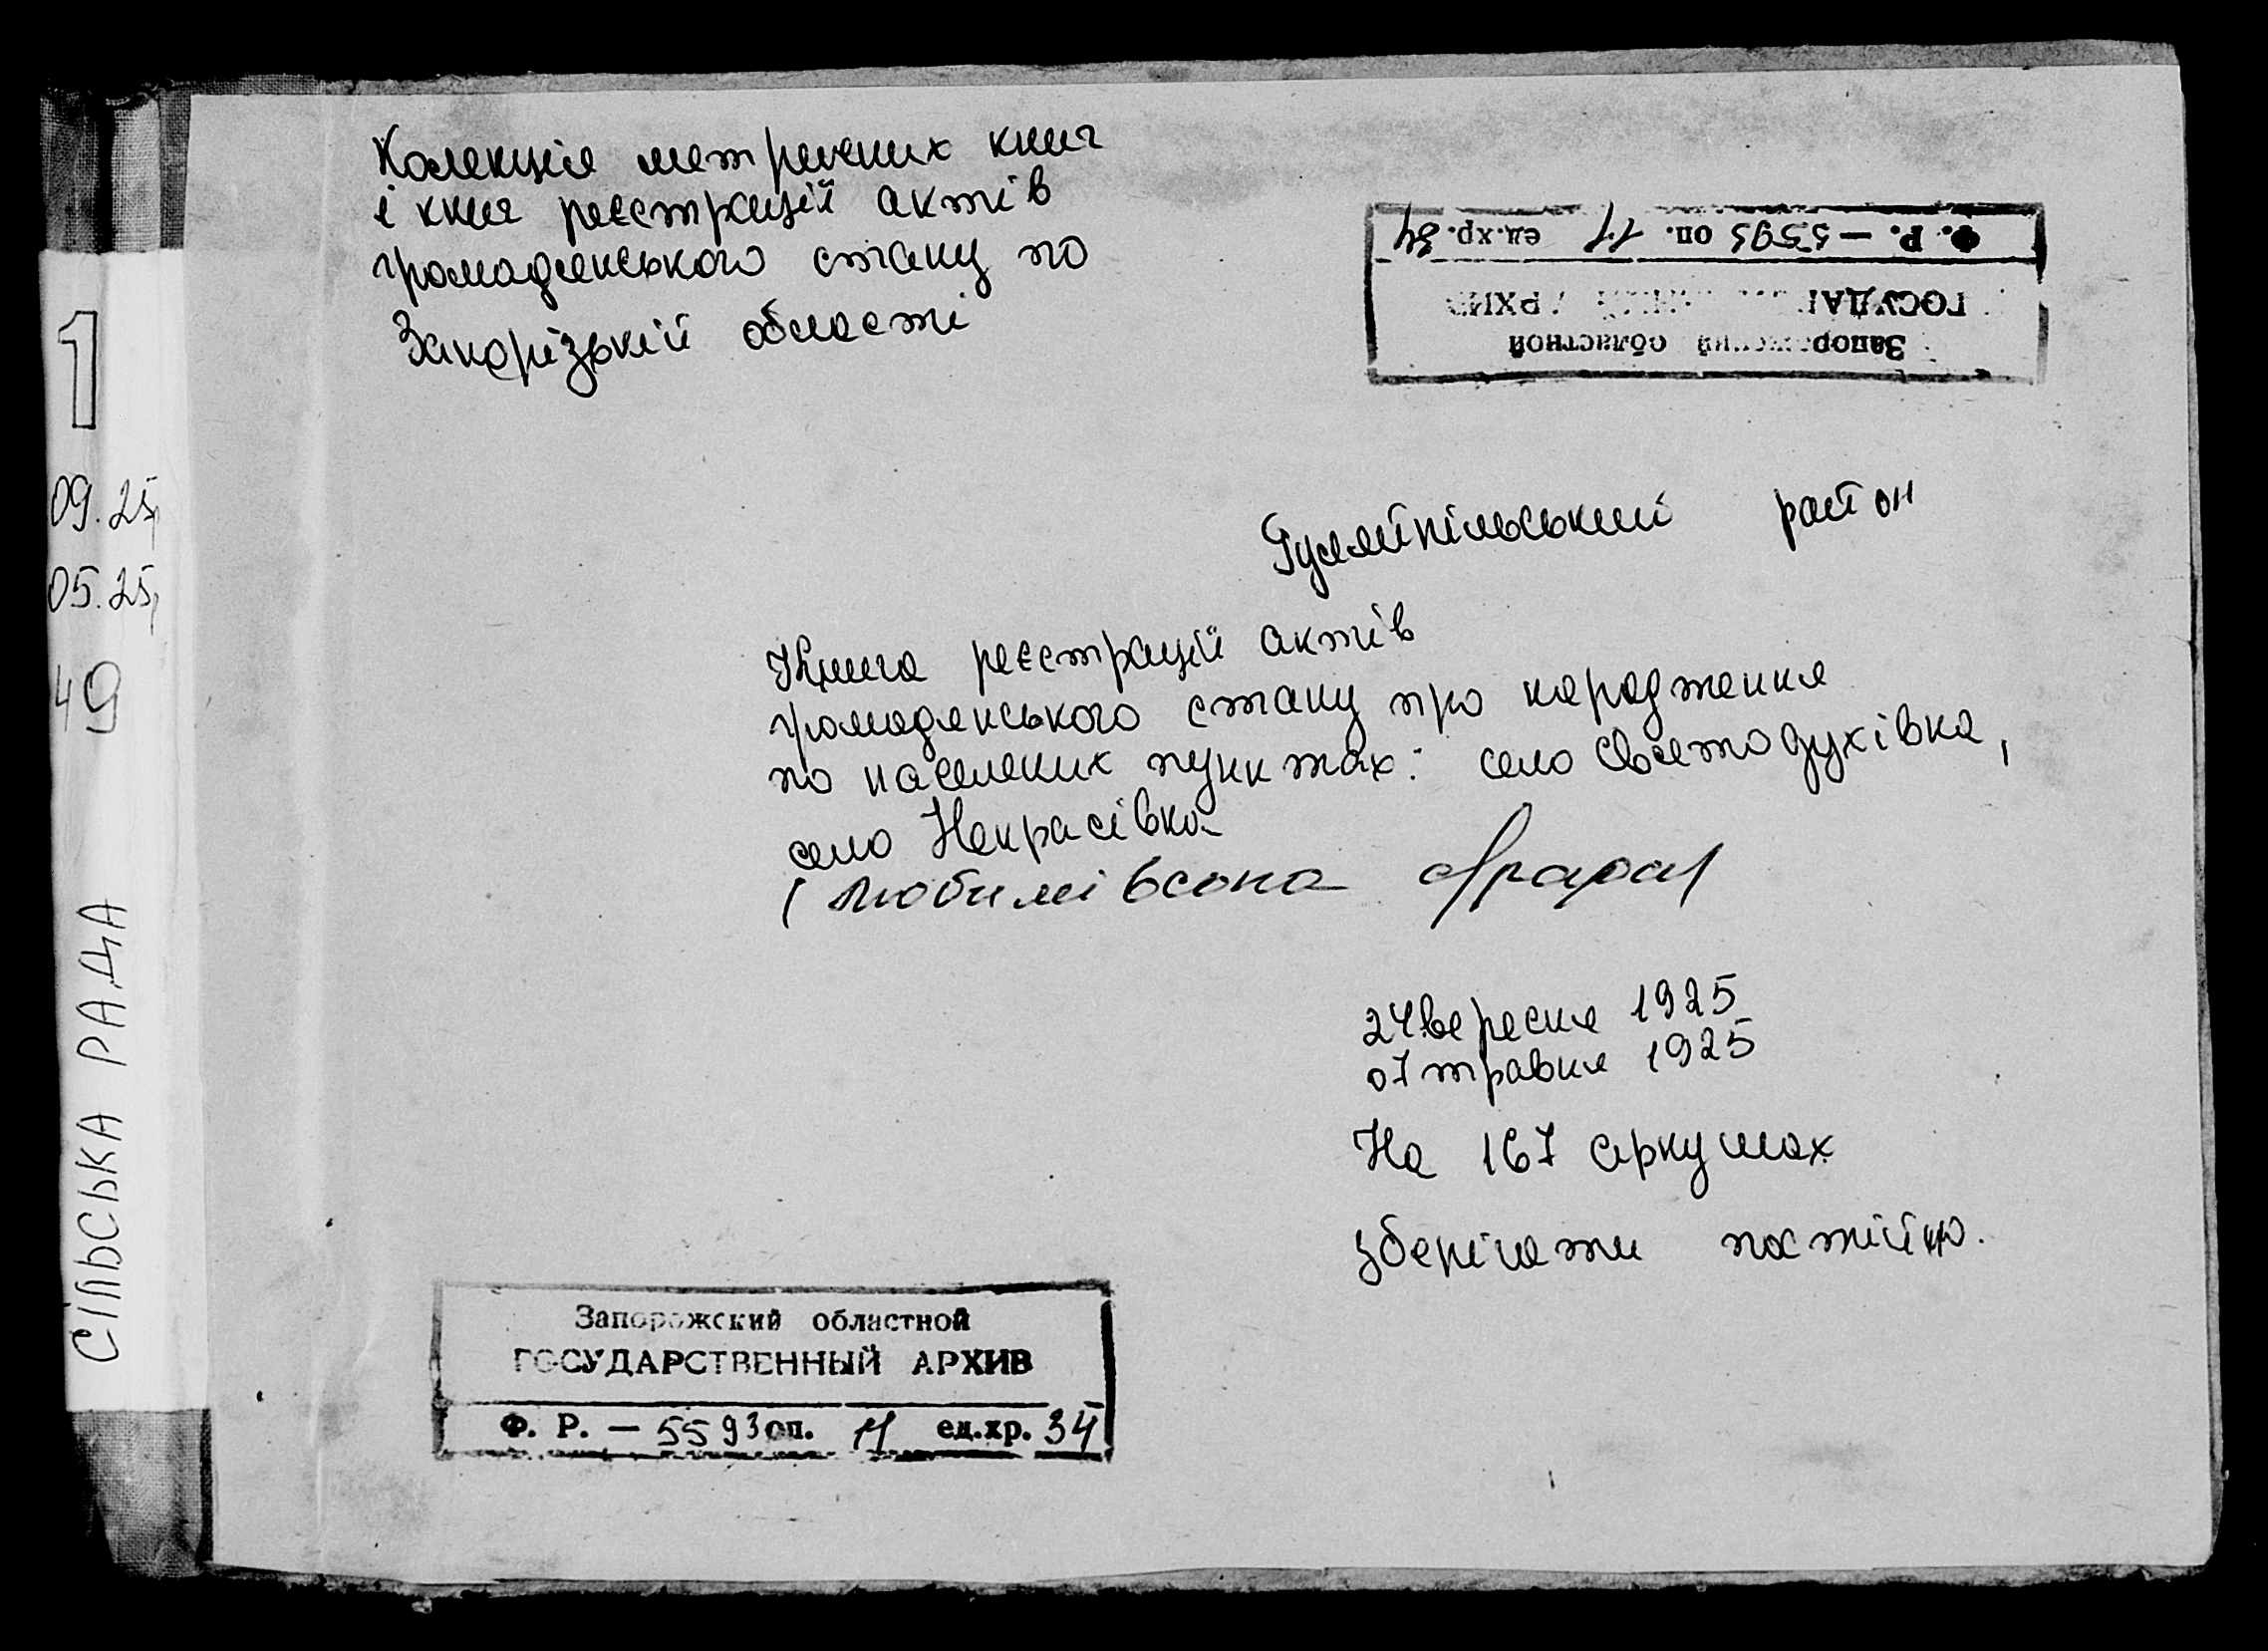 Колекція метричних книг
і книг реєстрацій актів
громадянського стану по
Запорізькій області
Ф. Р. — 5593 оп. 11 ед.хр. 34
ГОСУДАРСТВЕННЫЙ АРХИВ
Запорожский областной
Гуляйпільський район
Книга реєстрацій актів
громадянського стану про народження
по населених пунктах: село Святодухівка,
село Некрасівка
(Любимівська
24 вересня 1925
07 травня 1925
На 167 аркушах
зберігати постійно.
Запорожский областной
ГОСУДАРСТВЕННЫЙ АРХИВ
Ф. Р. — 5593 оп. 11 ед.хр. 34
1
09.25,
05.25,
49
СІЛЬСЬКА РАДА